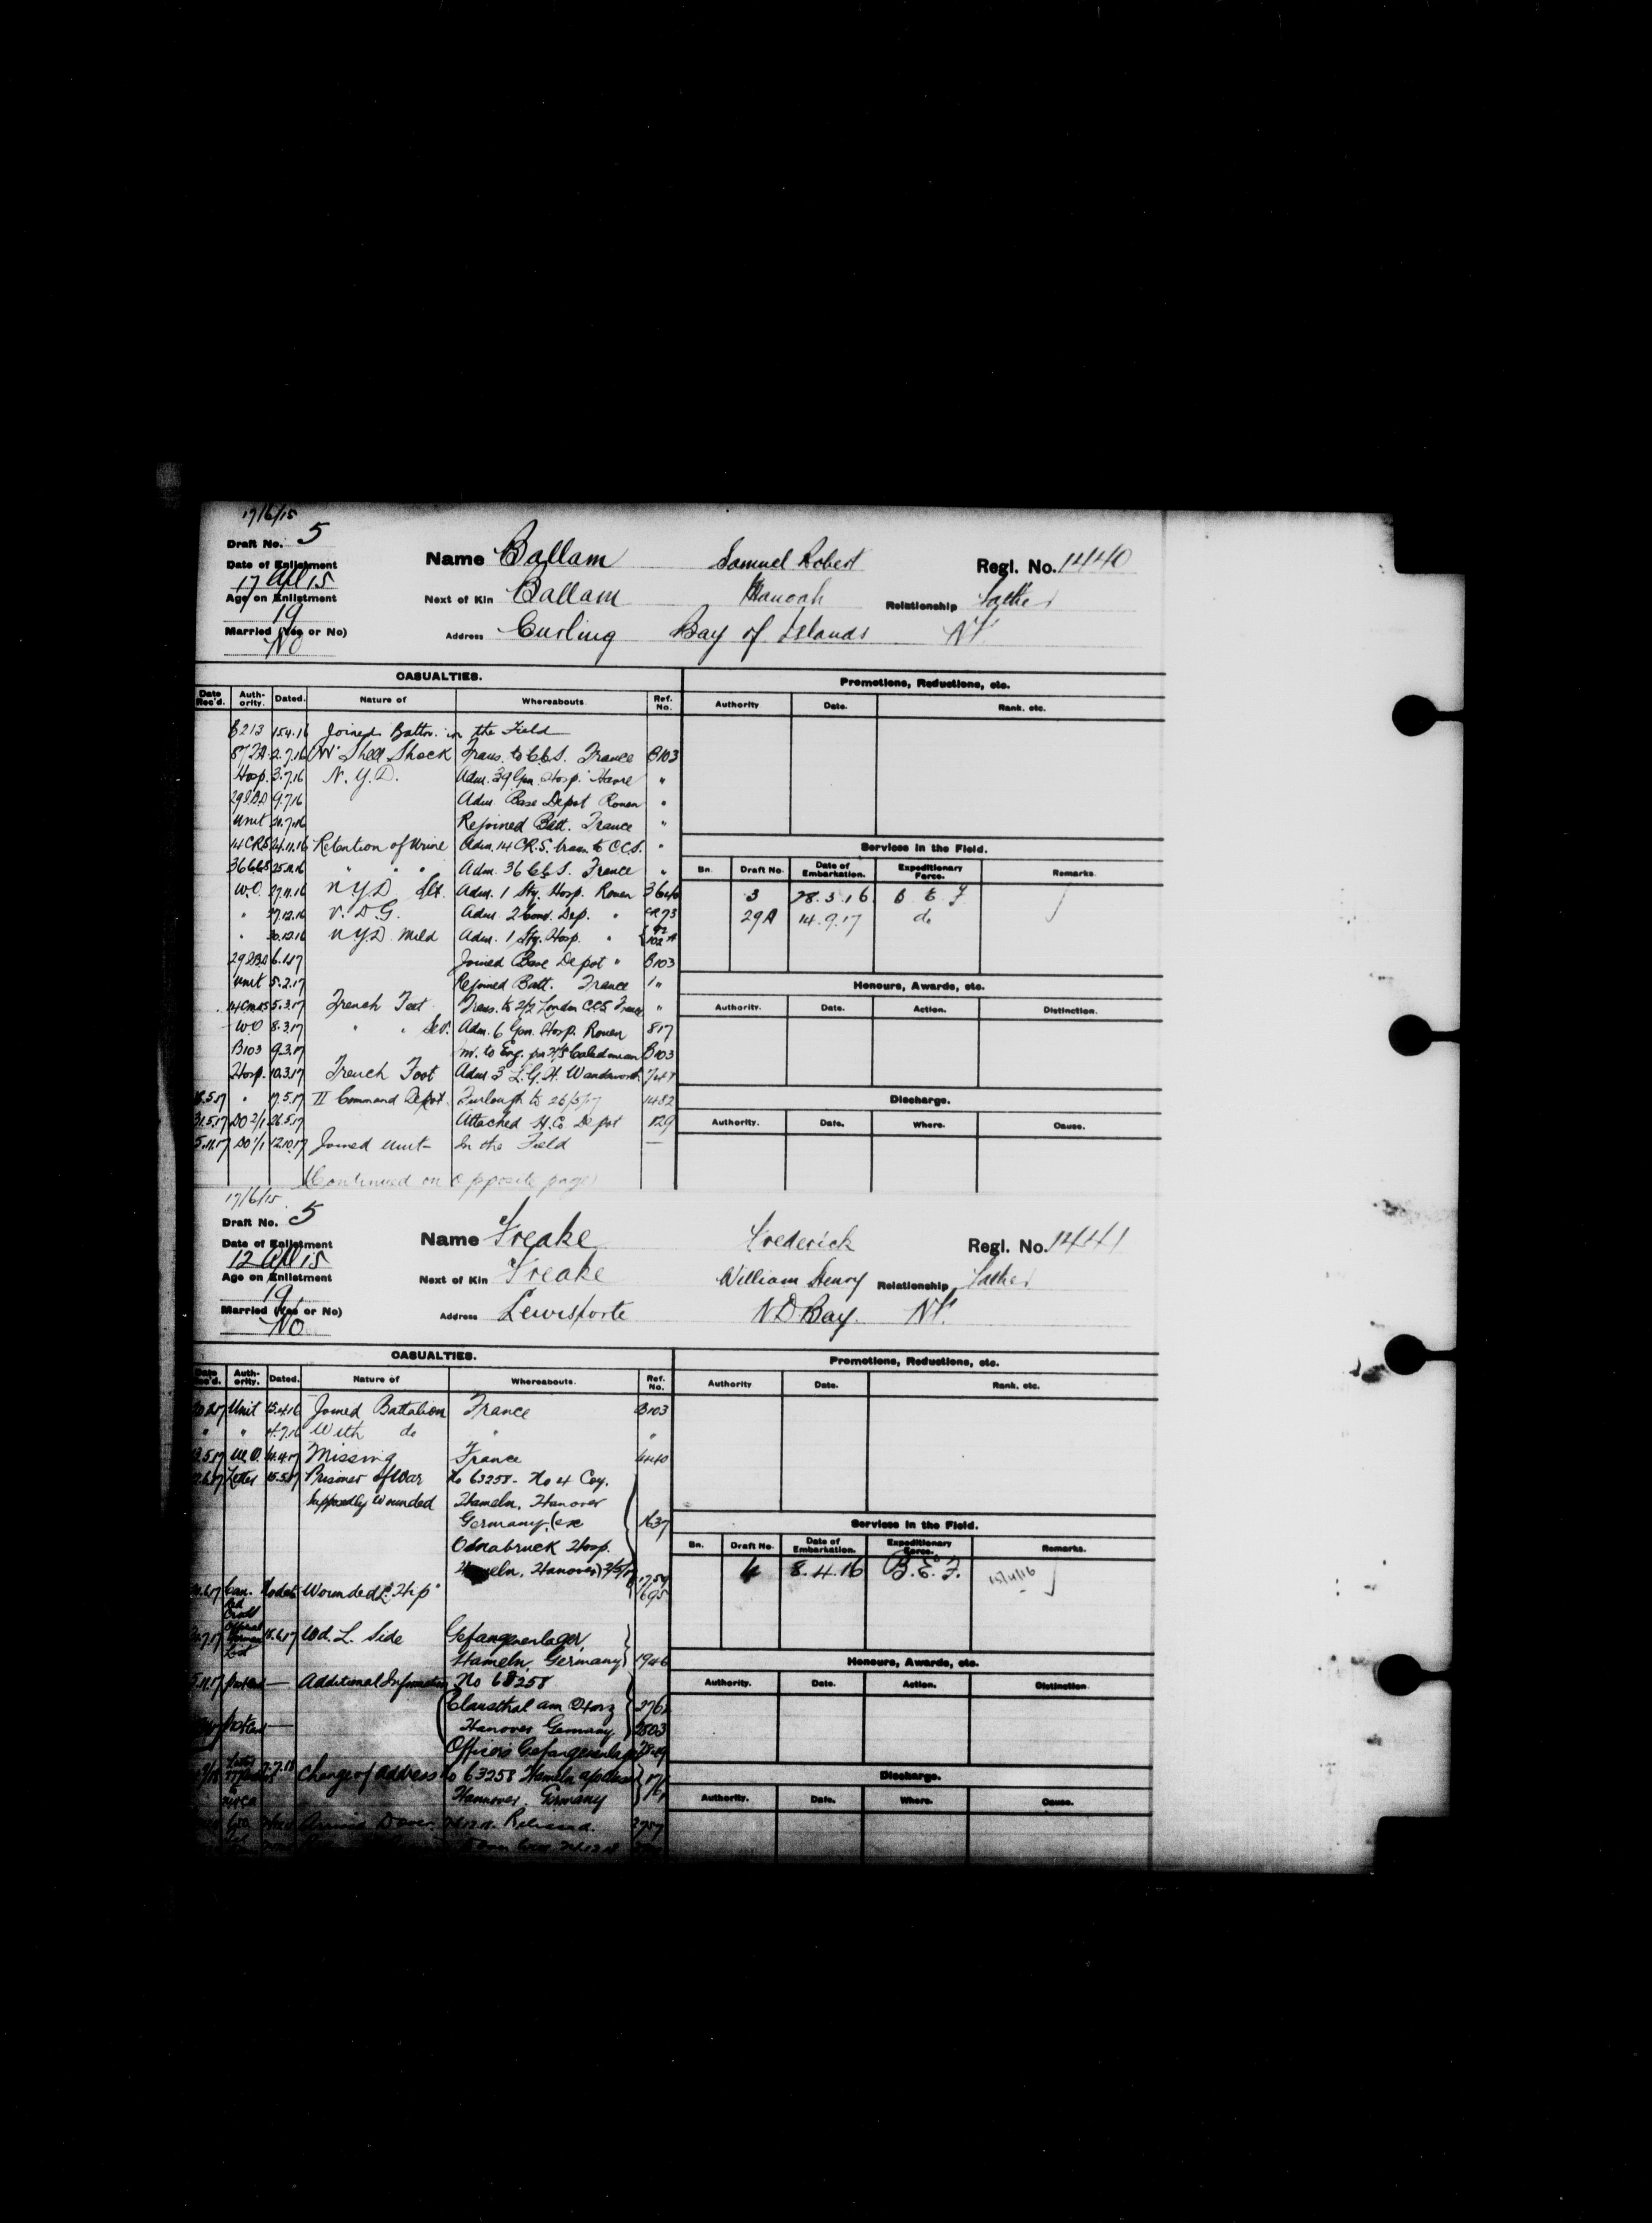 17/6/15
Draft No. 5
Name Ballam Samuel Robert Regl. No. 1440
Date of Enlistment
17 Apl 15
Next of Kin Ballam Hanoah Relationship Father
Age on Enlistment
19
Address Curling Bay of Islands Nf.
Married (Yes or No)
No
CASUALTIES. Promotions, Reductions, etc.
Date Rec'd. Auth-ority. Dated. Nature of Whereabouts. Ref. No. Authority Date. Rank. etc.
B213 15.4.16 Joined Battn. in the Field
87 FA 2.7.16 W. Shell Shock Trans. to C.C.S. France B103
Hosp. 3.7.16 N.Y.D. Adm. 39 Gen. Hosp. Havre "
29 I.B.D 9.7.16 Adm. Base Depot Rouen "
Unit Rejoined Batt. France "
14 CRS 24.11.16 Retention of Urine Adm. 14 C.R.S. trans. to C.C.S. "
36 CCS 25.11.16 " " " Adm. 36 C.C.S. France "
W.O. 27.11.16 N.Y.D. Slt. Adm. 1 Sty. Hosp. Rouen
" 27.12.16 V.D.G. Adm. 2 Conv. Dep. " CR 73
" 30.12.16 N.Y.D. Mild Adm. 1 Sty. Hosp. " 102 A
29 I.B.D 6.1.17 Joined Base Depot " B103
Unit 5.2.17 Rejoined Batt. France "
5.3.17 Trench Foot Trans. to 2/2 London C.C.S. France "
W.O 8.3.17 " " Sev. Adm. 6 Gen. Hosp. Rouen 817
B103 9.3.17 Inv. to Eng. per H/S Caledonian B103
Hosp. 10.3.17 Trench Foot Adm 3 L.G.H. Wandsworth
" 17.5.17 II Command Depot Furlough to 26/5/17 1482
31.5.17 DO 2/1 26.5.17 Attached H.Q Depot 129
5.11.17 DO 1/1 12.10.17 Joined unit In the Field —
(Continued on opposite page)
Services in the Field.
Bn. Draft No. Date of Embarkation. Expeditionary Force. Remarks
3 28.3.16 B E F
29A 14.9.17 do
Honours, Awards, etc.
Authority. Date. Action. Distinction.
Discharge.
Authority. Date. Where. Cause.
17/6/15
Draft No. 5
Name Freake Frederick Regl. No. 1441
Date of Enlistment
12 Apl 15
Next of Kin Freake William Henry Relationship Father
Age on Enlistment
19
Address Lewisporte N D Bay. Nf.
Married (Yes or No)
No
CASUALTIES. Promotions, Reductions, etc.
Date Rec'd. Auth-ority. Dated. Nature of Whereabouts. Ref. No. Authority Date. Rank. etc.
Unit 15.4.16 Joined Battalion France B103
" " 4.7.16 With do " "
W.O. 14.4.17 Missing France
Letter 15.5.17 Prisoner of War No 63258 - No 4 Coy.
Supposedly Wounded Hameln, Hanover
Germany. (exe 1637
Osnabruck Hosp.
Hameln, Hanover)
Can. Red Cross No date Wounded L. Hip
Official German List 15.6.17 Wd. L. Side Gefangenenlager
Hameln, Germany 1946
Additional Information No 63258
Clausthal am Harz
Hanover Germany 2803
Officers Gefangenenlager
7.7.18 Change of Address No 63258 Hameln
Hannover. Germany
Arrived Dover Released. 3757
Services in the Field.
Bn. Draft No. Date of Embarkation. Expeditionary Force. Remarks.
4 8.4.16 B.E.F.
Honours, Awards, etc.
Authority. Date. Action. Distinction
Discharge.
Authority. Date. Where. Cause.